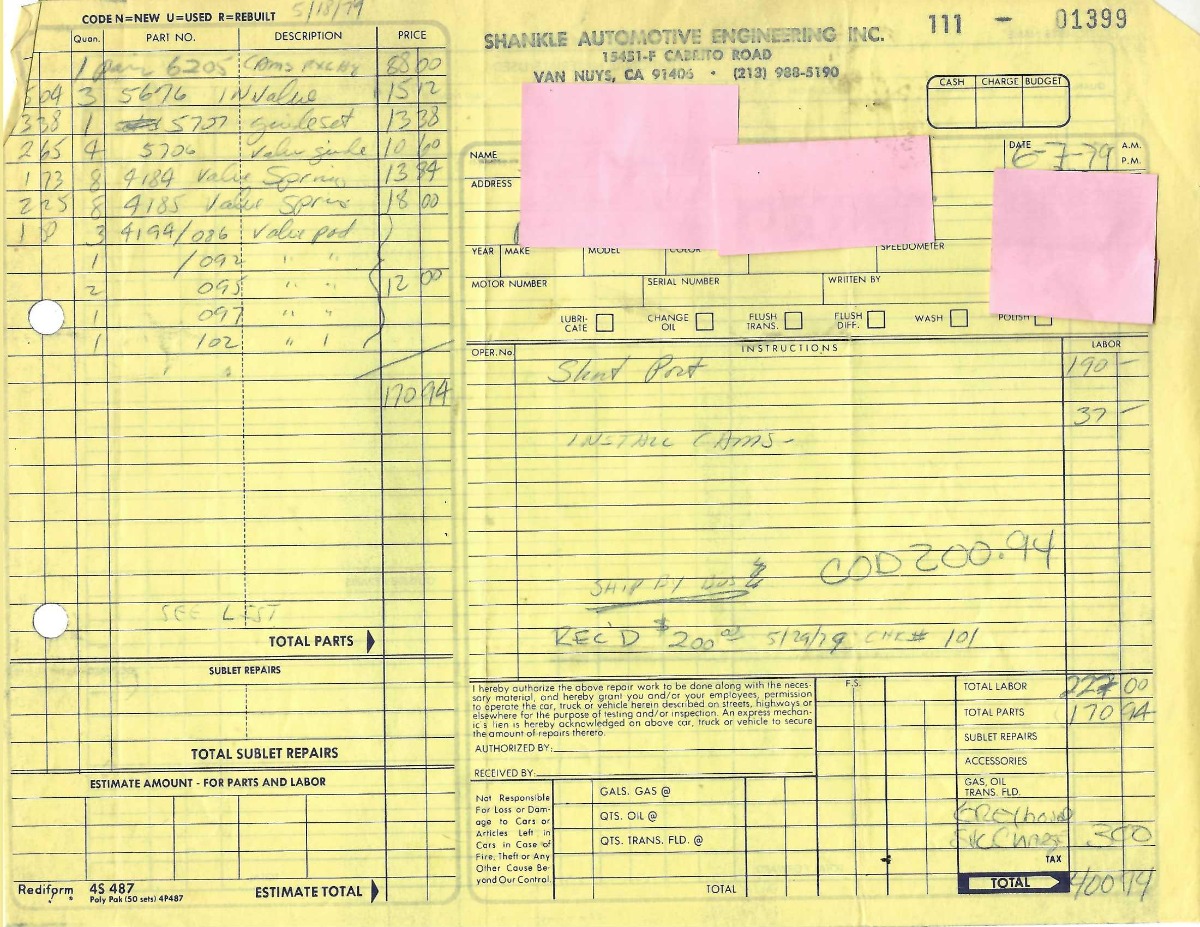 CODE N=NEW U=USED R=REBUILT 5/18/79
Quan. PART NO. DESCRIPTION PRICE
1 pair 6205 CAMS 88 00
5 04 3 5676 IN Valve 15 12
3 38 1 5707 guide set 13 38
2 65 4 5706 Valve guide 10 60
1 73 8 4184 Valve Spring 13 84
2 25 8 4185 Valve Spring 18 00
1 50 3 4194/086 Valve pad
1 /092 " "
2 095 " " 12 00
1 097 " "
1 102 " "
170 94
SEE LIST
TOTAL PARTS
SUBLET REPAIRS
TOTAL SUBLET REPAIRS
ESTIMATE AMOUNT - FOR PARTS AND LABOR
Rediform 4S 487
Poly Pak (50 sets) 4P487
ESTIMATE TOTAL
SHANKLE AUTOMOTIVE ENGINEERING INC.
15451-F CABRITO ROAD
VAN NUYS, CA 91406 • (213) 988-5190
111 - 01399
CASH CHARGE BUDGET
NAME DATE 6-7-79 A.M.
P.M.
ADDRESS
YEAR MAKE MODEL COLOR SPEEDOMETER
MOTOR NUMBER SERIAL NUMBER WRITTEN BY
LUBRI-
CATE CHANGE
OIL FLUSH
TRANS. FLUSH
DIFF. WASH POLISH
OPER. No. INSTRUCTIONS LABOR
Port 190 -
37 -
INSTALL CAMS -
COD 200.94
SHIP BY BUS
REC'D $200.00 5/29/79 CHK# 101
I hereby authorize the above repair work to be done along with the neces-
sary material, and hereby grant you and/or your employees, permission
to operate the car, truck or vehicle herein described on streets, highways or
elsewhere for the purpose of testing and/or inspection. An express mechan-
ic's lien is hereby acknowledged on above car, truck or vehicle to secure
the amount of repairs thereto.
AUTHORIZED BY:
RECEIVED BY:
F.S.
TOTAL LABOR 227 00
TOTAL PARTS 170 94
SUBLET REPAIRS
ACCESSORIES
GAS, OIL
TRANS. FLD.
GREyhound
Charge 3 00
TAX
TOTAL 400 94
Not Responsible
For Loss or Dam-
age to Cars or
Articles Left in
Cars in Case of
Fire, Theft or Any
Other Cause Be-
yond Our Control.
GALS. GAS @
QTS. OIL @
QTS. TRANS. FLD. @
TOTAL